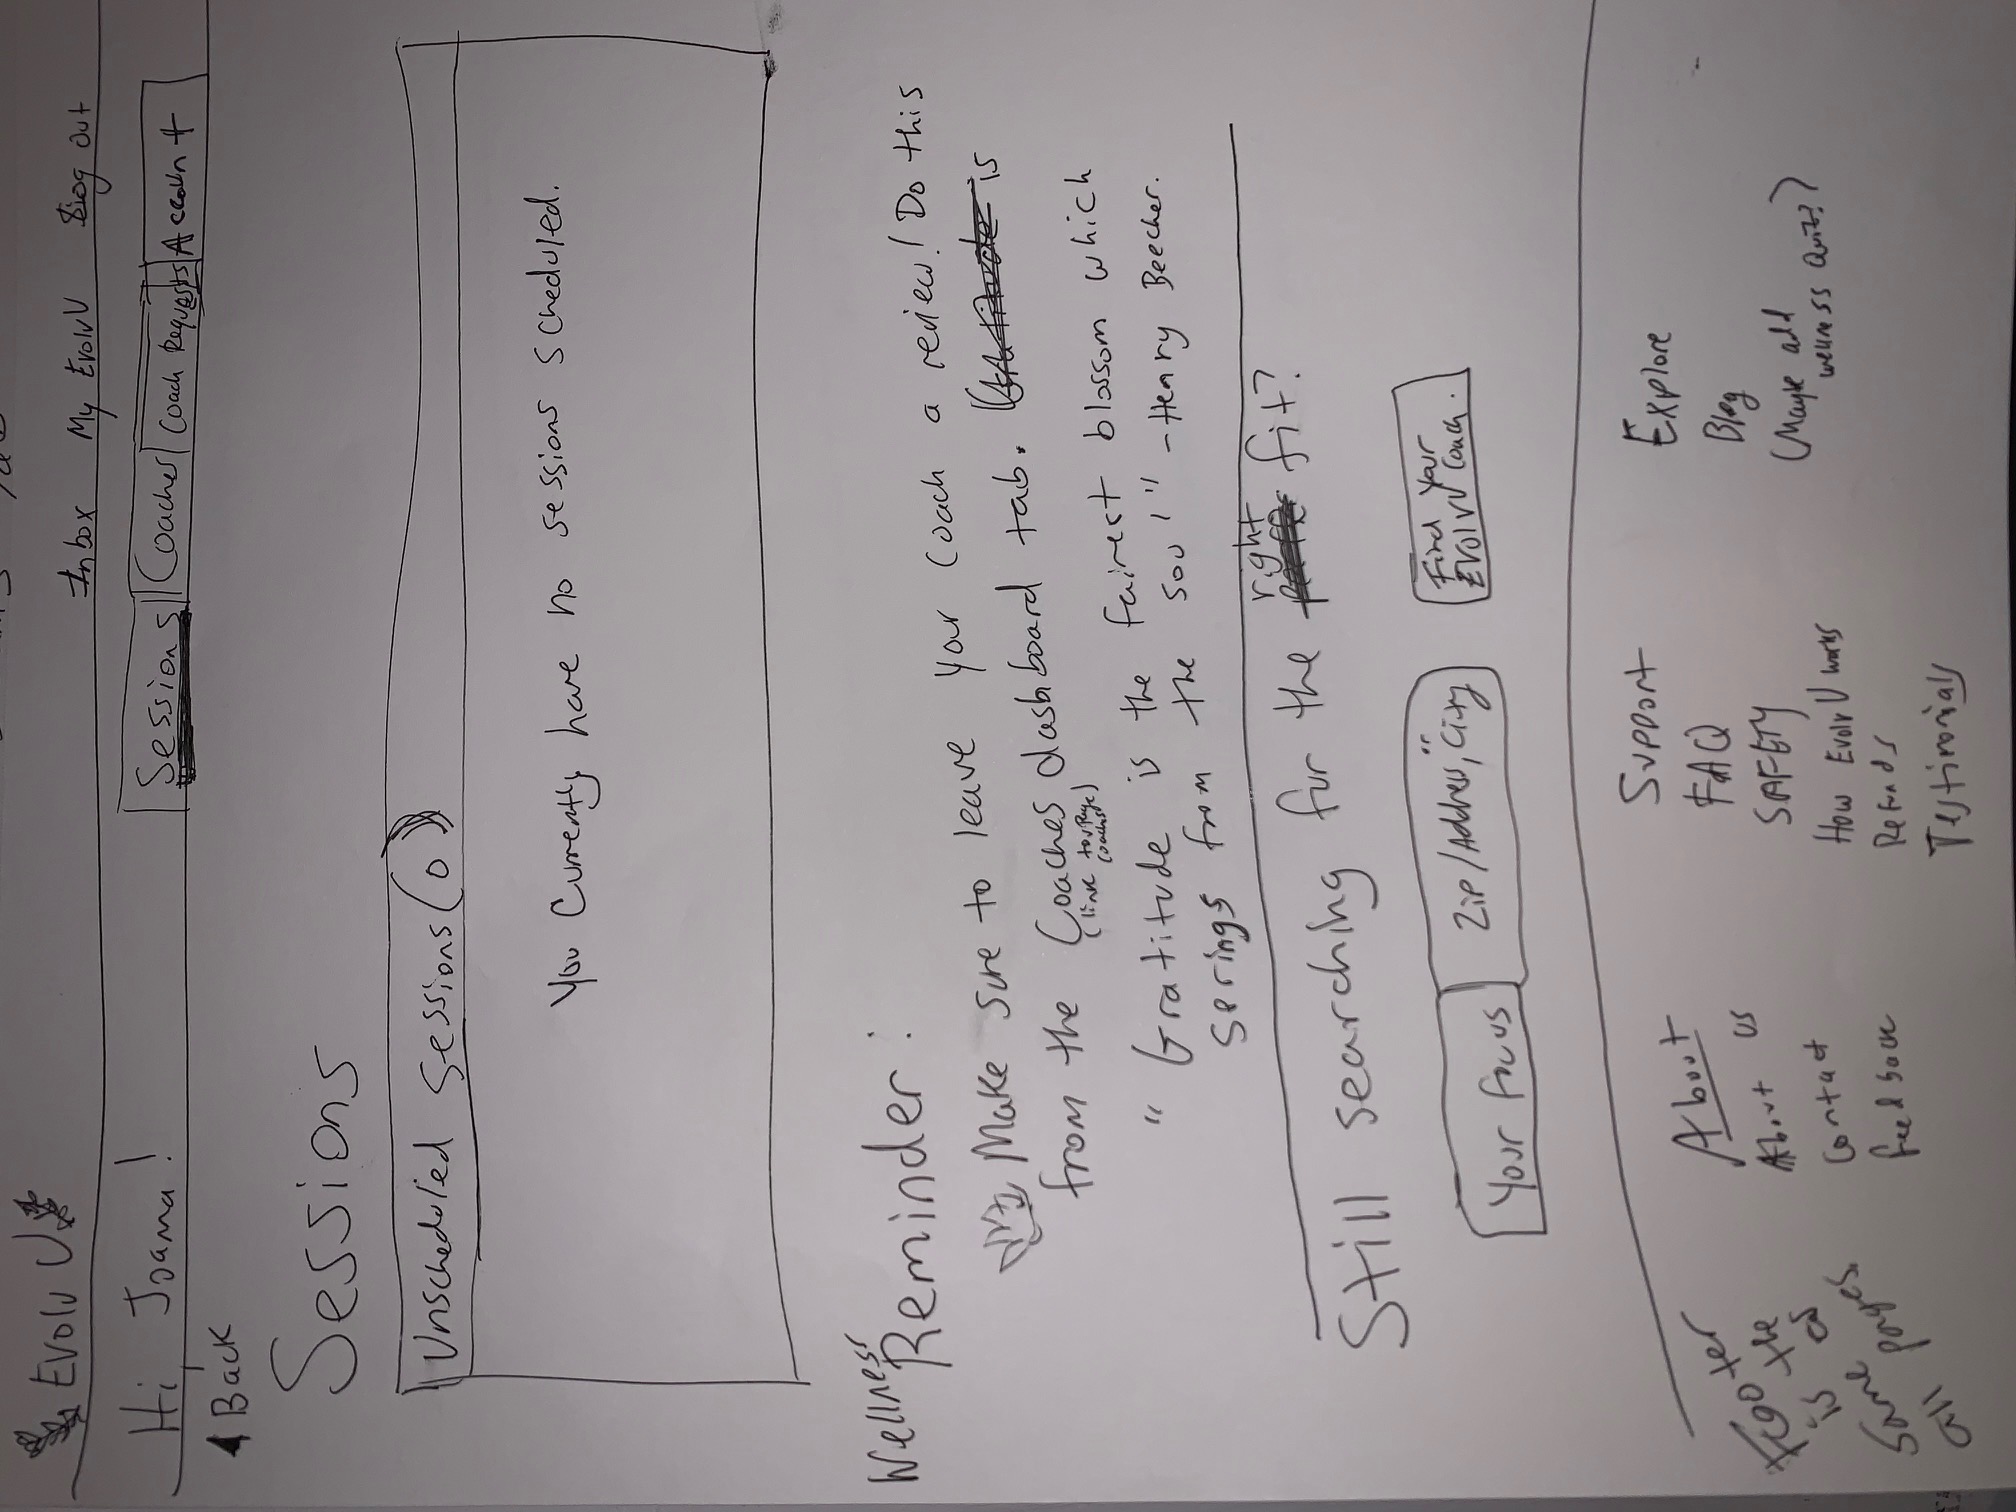 EvolvU
Inbox My EvolvU Sign out
Hi Joanna!
Sessions Coaches Coach Requests Account
Back
Sessions
Unscheduled Sessions (0)
You Currently have no sessions scheduled.
Wellness
Reminder:
Make sure to leave your coach a review! Do this
from the Coaches dashboard tab. is
(link to page
coaches)
" Gratitude is the fairest blossom which
Serings from the soul" -Henry Beecher.
Still searching for the right fit?
Your focus Zip/Address, City Find Your
EvolvU Coach.
Footer
is the
Same as
all pages.
About
About us
Contact
feedback
Support
FAQ
SAFETY
How EvolvU works
Refunds
Testimonials
Explore
Blog
(Maybe add
wellness quiz?)